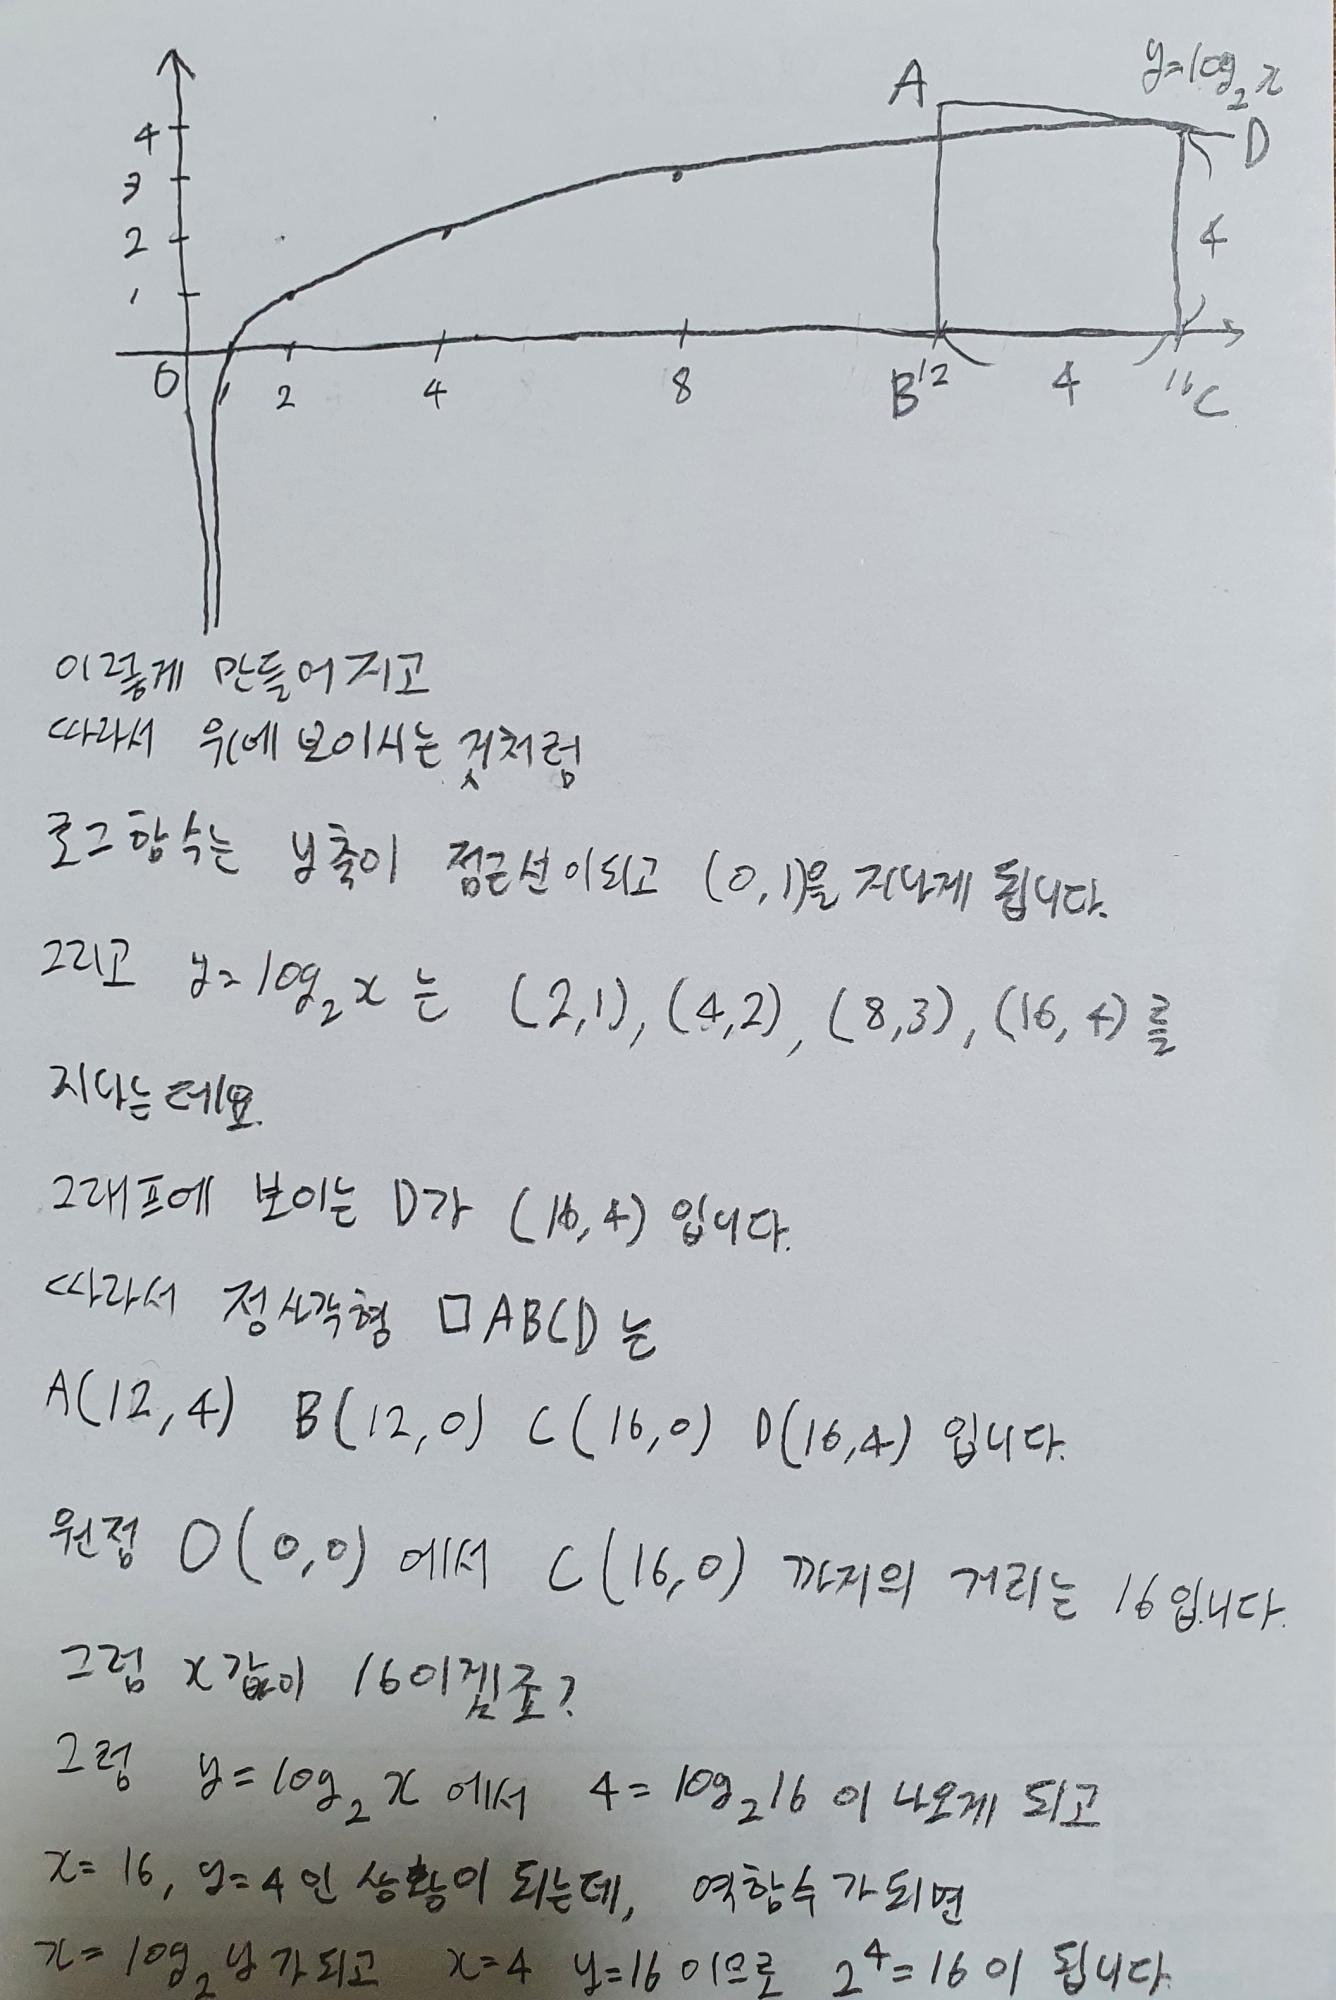 y=log₂x
A
4
D
3
2
4
1
O
1
2
4
8
B
12
4
16
C
이렇게 만들어지고
따라서 위에 보이시는 것처럼
로그함수는 y축이 점근선이되고 (0,1)을 지나게 됩니다.
그리고 y=log₂x 는 (2,1), (4,2), (8,3), (16,4)를
지나는데요.
그래프에 보이는 D가 (16,4)입니다.
따라서 정사각형 □ABCD는
A(12,4) B(12,0) C(16,0) D(16,4) 입니다.
원점 O(0,0)에서 C(16,0) 까지의 거리는 16입니다.
그럼 x값이 16이겠죠?
그럼 y=log₂x 에서 4=log₂16 이 나오게 되고
x=16, y=4인 상황이 되는데, 역함수가되면
x=log₂y가되고 x=4 y=16이므로 2⁴=16이 됩니다.